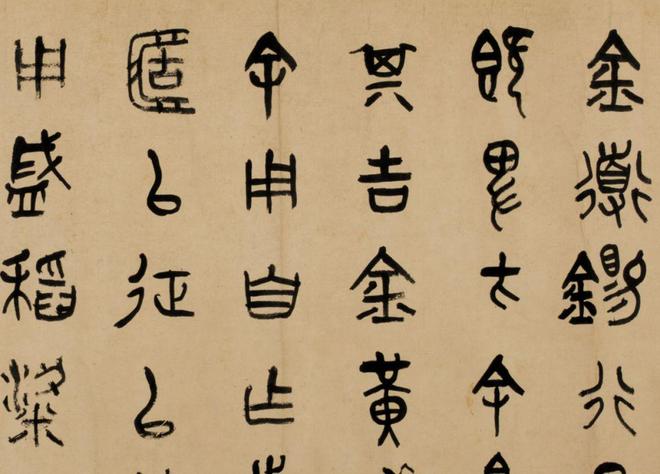 金道錫行
既卑方余
其吉金黃
余用自乍
簠以征以
用盛稻粱